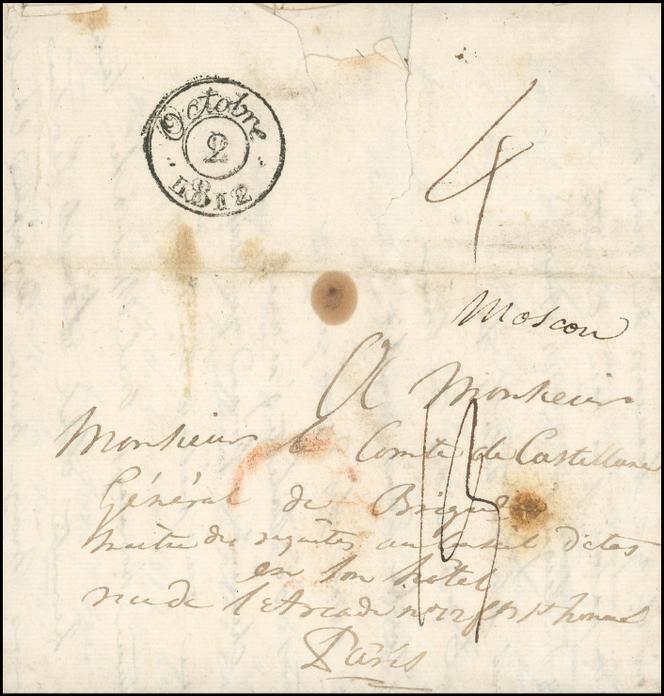 Octobre
2
1812
4
Moscou
A Monsieur
Monsieur le Comte de Castellane
Général de Brigade
Maitre des requêtes au Conseil d'état
en son hôtel
rue de l'Arcade n° 12 fg St honoré
Paris